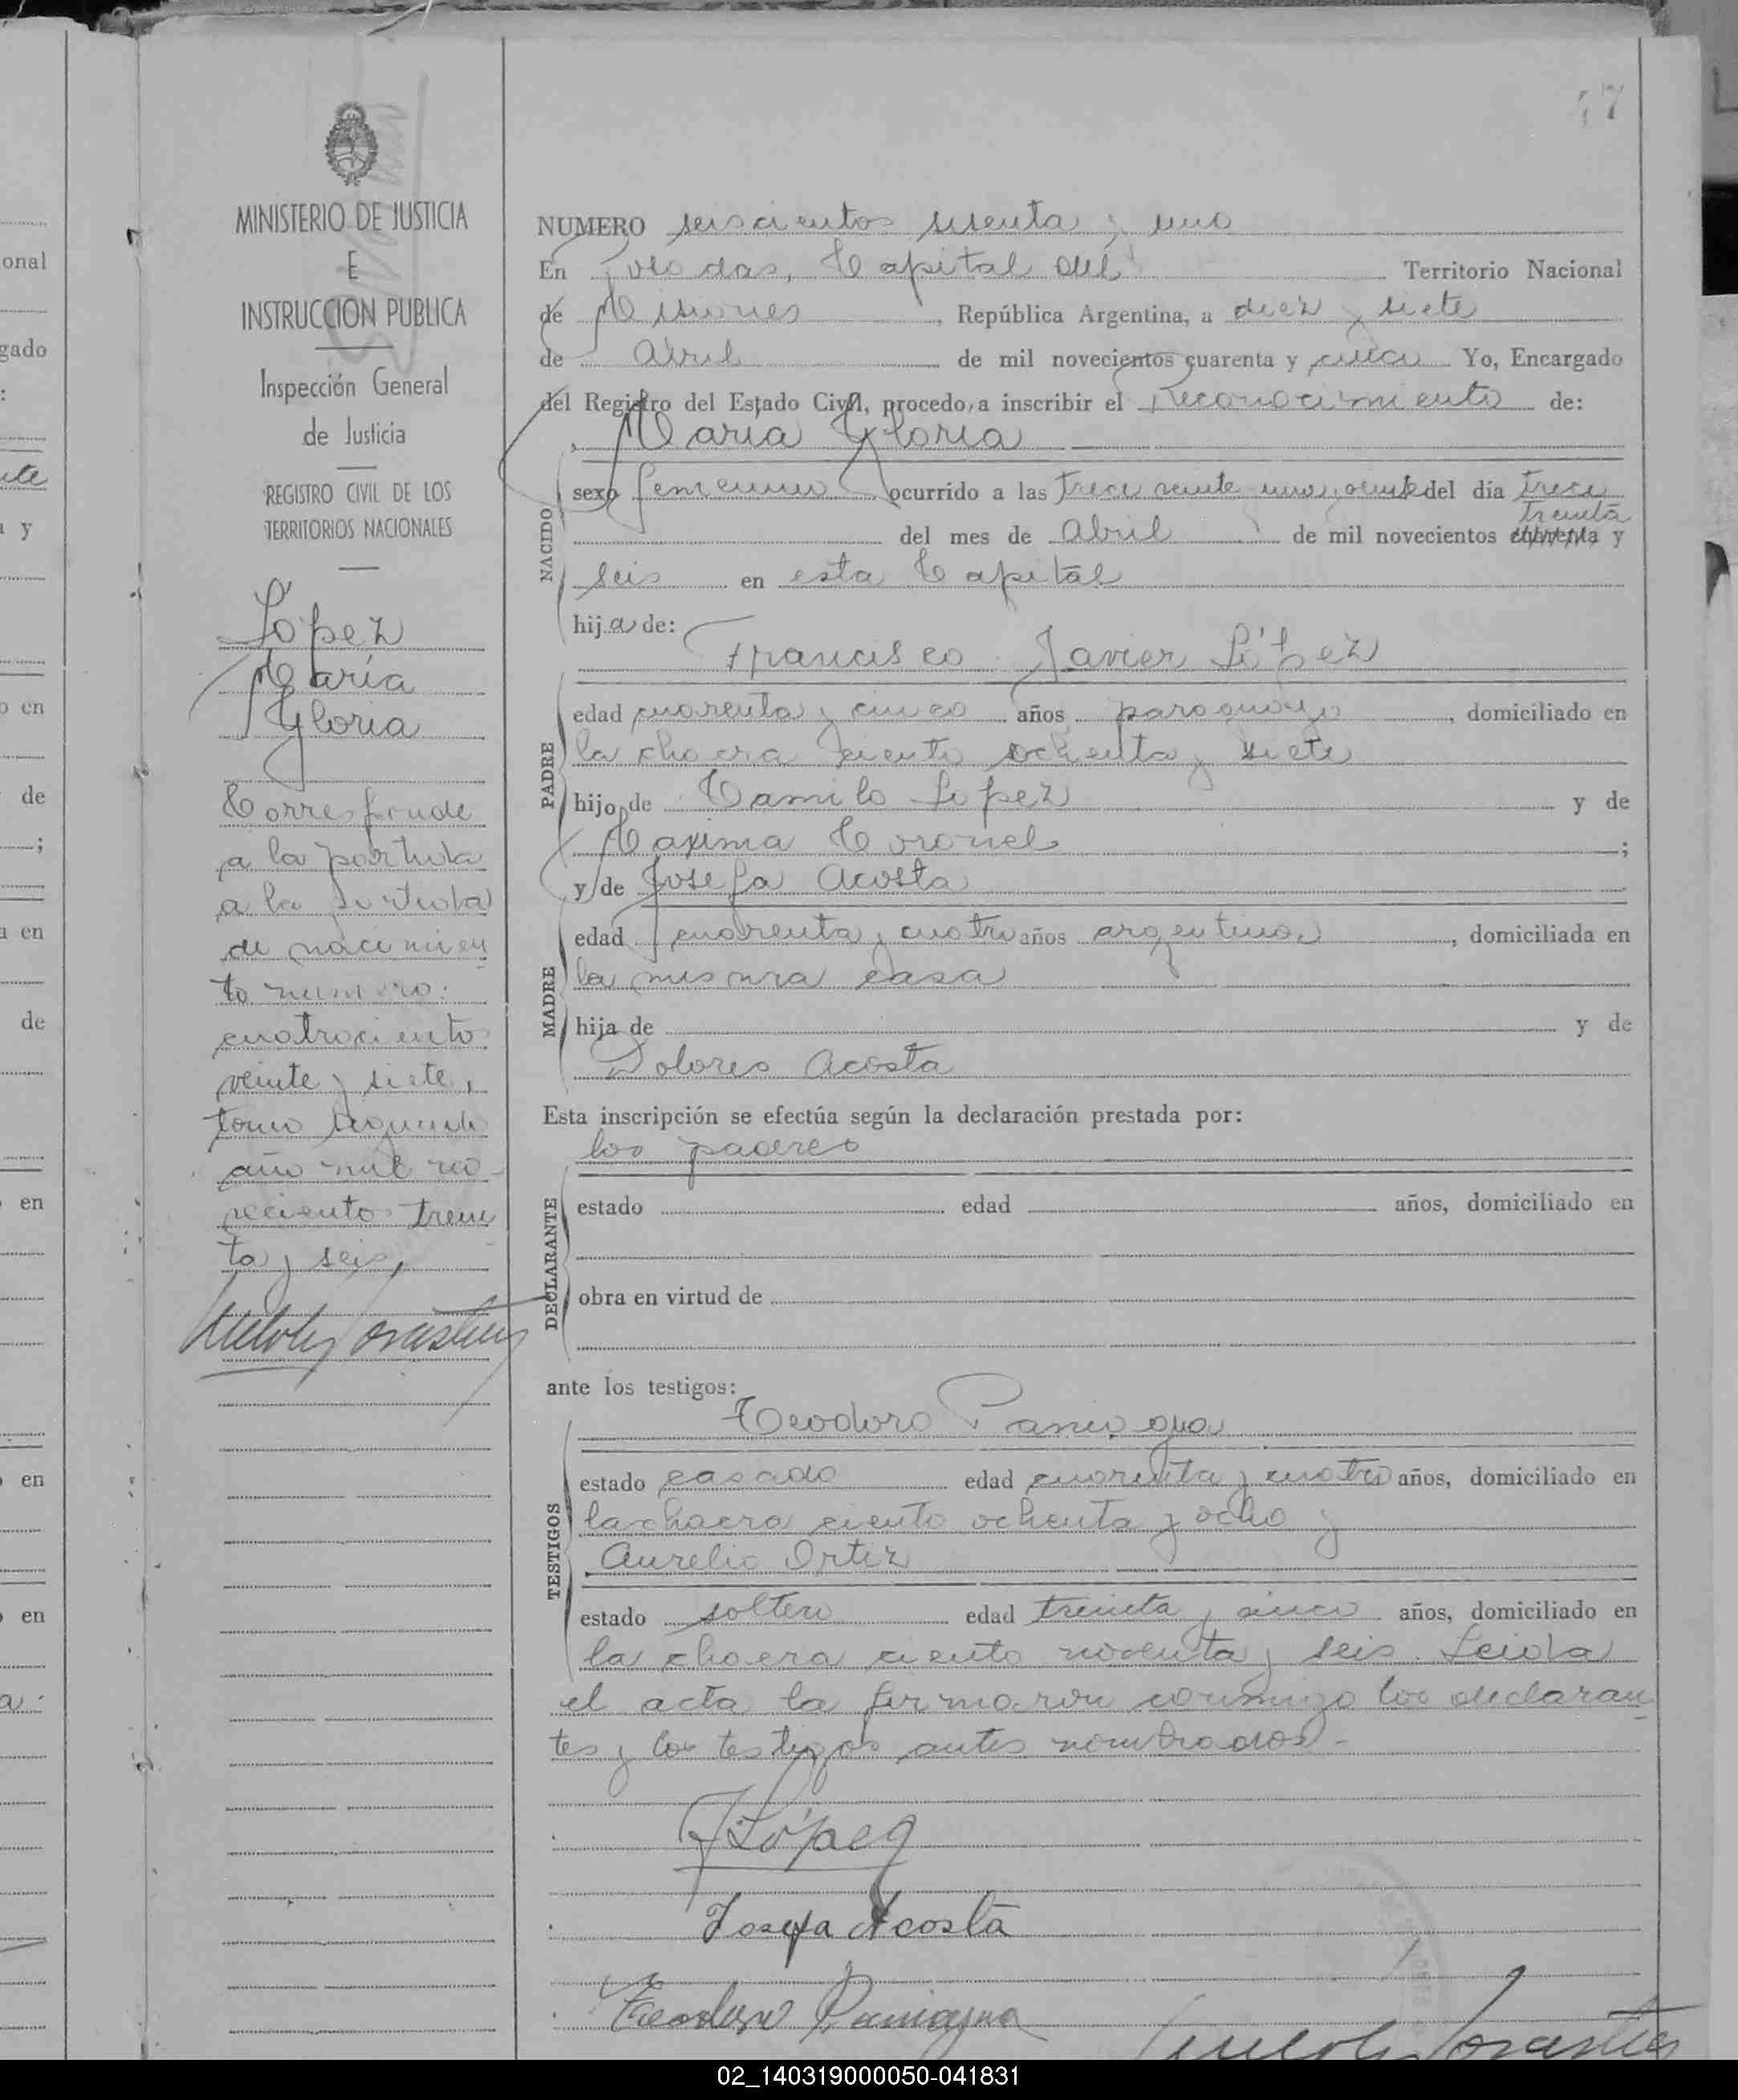 47
MINISTERIO DE JUSTICIA
E
INSTRUCCION PUBLICA
Inspección General
de Justicia
REGISTRO CIVIL DE LOS
TERRITORIOS NACIONALES
López
María
Gloria
Corresponde
a la partida
a la partida
de nacimien
to numero:
cuatrociento
veinte y siete,
tomo segundo
año mil no-
veciento trein
ta y seis,
NUMERO seiscientos sesenta y uno
En Posadas, Capital del Territorio Nacional
de Misiones, República Argentina, a diez y siete
de Abril de mil novecientos cuarenta y cinco Yo, Encargado
del Registro del Estado Civil, procedo a inscribir el Reconocimiento de:
Maria Gloria
NACIDO
sexo femenino ocurrido a las trece veinte del día trece
treinta
del mes de Abril de mil novecientos cuarenta y
seis en esta Capital
hija de:
Francisco Javier López
PADRE
edad cuarenta y cinco años paraguayo, domiciliado en
la chacra ciento ochenta y siete
hijo de Camilo Lopez y de
Maxima Coronel;
y de Josefa Acosta
MADRE
edad cuarenta y cuatro años argentina, domiciliada en
la misma casa
hija de y de
Dolores Acosta
Esta inscripción se efectúa según la declaración prestada por:
los padres
DECLARANTE
estado edad años, domiciliado en
obra en virtud de
ante los testigos:
Teodoro Paniagua
TESTIGOS
estado casado edad cuarenta y cuatro años, domiciliado en
la chacra ciento ochenta y ocho y
Aurelio Ortiz
estado soltero edad treinta y cinco años, domiciliado en
la chacra ciento noventa y seis. Leida
el acta la firmaron conmigo los declaran
tes y los testigos antes nombrados.-
FLópez
Josefa Acosta
Teodoro Paniagua
onal
gado
:
y
en
de
;
en
de
en
en
en
02_140319000050-041831